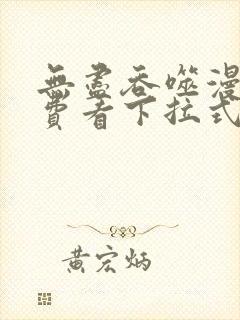 無盡吞噬漫
費看下拉式
黃宏炳